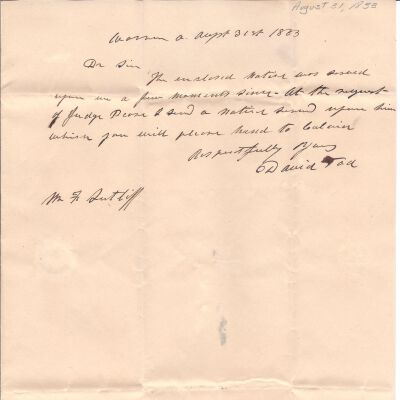 August 31, 1833
Warren O Augst 31st 1833
Dr Sir
The enclosed Notice was served
upon me a few moments since. At the request
of Judge Pease I send a Notice served upon him
which you will please hand to Calvin
Respectfully Yours
David Tod
Mr F. Sutliff